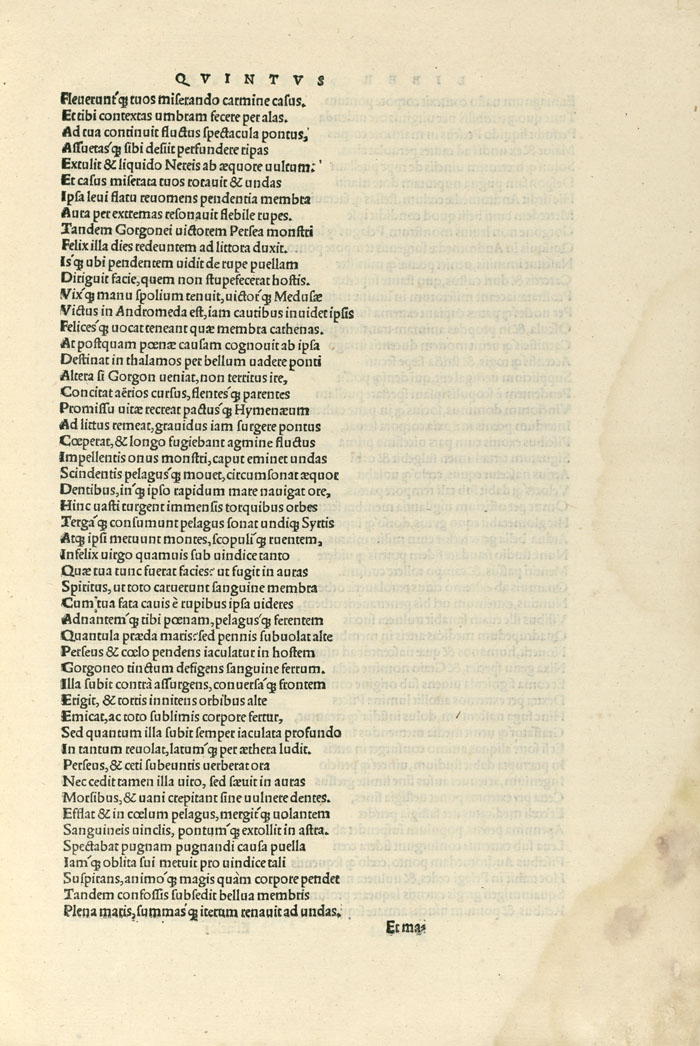 QVINTVS
Fleuerunt´q; tuos miserando carmine casus.
Et tibi contextas umbram fecere per alas.
Ad tua continuit fluctus spectacula pontus,
Assuetas´q; sibi desiit perfundere ripas
Extulit & liquido Nereis ab æquore uultum:
Et casus miserata tuos rorauit & undas
Ipsa leui flatu reuomens pendentia membra
Aura per extremas resonauit flebile rupes.
Tandem Gorgonei uictorem Persea monstri
Felix illa dies redeuntem ad littora duxit.
Is´q; ubi pendentem uidit de rupe puellam
Diriguit facie, quem non stupefecerat hostis.
Vix´q; manu spolium tenuit, uictor´q; Medusæ
Victus in Andromeda est, iam cautibus inuidet ipsis
Felices´q; uocat teneant quæ membra cathenas.
At postquam pœnæ causam cognouit ab ipsa
Destinat in thalamos per bellum uadere ponti
Altera si Gorgon ueniat, non territus ire,
Concitat aërios cursus, flentes´q; parentes
Promissu uitæ recreat pactus´q; Hymenæum
Ad littus remeat, grauidus iam surgere pontus
Cœperat, & longo fugiebant agmine fluctus
Impellentis onus monstri, caput eminet undas
Scindentis pelagus´q; mouet, circumsonat æquor
Dentibus, in´q; ipso rapidum mare nauigat ore,
Hinc uasti turgent immensis torquibus orbes
Terga´q; consumunt pelagus sonat undiq; Syrtis
Atq; ipsi metuunt montes, scopuli´q; ruentem,
Infelix uirgo quamuis sub uindice tanto
Quæ tua tunc fuerat facies: ut fugit in auras
Spiritus, ut toto caruerunt sanguine membra
Cum tua fata cauis è rupibus ipsa uideres
Adnantem´q; tibi pœnam, pelagus´q; ferentem
Quantula præda maris: sed pennis subuolat alte
Perseus & cœlo pendens iaculatur in hostem
Gorgoneo tinctum defigens sanguine ferrum.
Illa subit contrà assurgens, conuersa´q; frontem
Erigit, & tortis innitens orbibus alte
Emicat, ac toto sublimis corpore fertur,
Sed quantum illa subit semper iaculata profundo
In tantum reuolat, latum´q; per æthera ludit.
Perseus, & ceti subeuntis uerberat ora
Nec cedit tamen illa uiro, sed sæuit in auras
Morsibus, & uani crepitant sine uulnere dentes.
Efflat & in cœlum pelagus, mergit´q; uolantem
Sanguineis uinclis, pontum´q; extollit in astra.
Spectabat pugnam pugnandi causa puella
Iam´q; oblita sui metuit pro uindice tali
Suspirans, animo´q; magis quàm corpore pendet
Tandem confossis subsedit bellua membris
Plena maris, summas´q; iterum renauit ad undas,
Et ma-